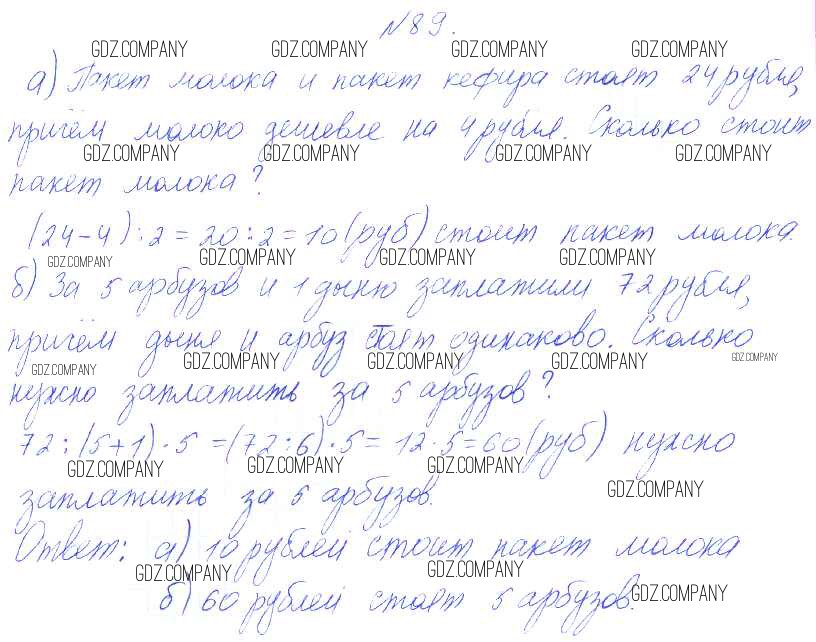 №89.
GDZ.COMPANY GDZ.COMPANY GDZ.COMPANY GDZ.COMPANY
а) Пакет молока и пакет кефира стоят 24 рубля,
причём молоко дешевле на 4 рубля. Сколько стоит
GDZ.COMPANY GDZ.COMPANY GDZ.COMPANY GDZ.COMPANY
пакет молока?
(24-4):2=20:2=10(руб) стоит пакет молока.
GDZ.COMPANY GDZ.COMPANY GDZ.COMPANY GDZ.COMPANY
б) За 5 арбузов и 1 дыню заплатили 72 рубля,
причём дыня и арбуз стоят одинаково. Сколько
GDZ.COMPANY GDZ.COMPANY GDZ.COMPANY GDZ.COMPANY GDZ.COMPANY
нужно заплатить за 5 арбузов?
72:(5+1)·5=(72:6)·5=12·5=60(руб) нужно
GDZ.COMPANY GDZ.COMPANY GDZ.COMPANY
заплатить за 5 арбузов.
GDZ.COMPANY
Ответ: а) 10 рублей стоит пакет молока
GDZ.COMPANY GDZ.COMPANY
б) 60 рублей стоят 5 арбузов.
GDZ.COMPANY